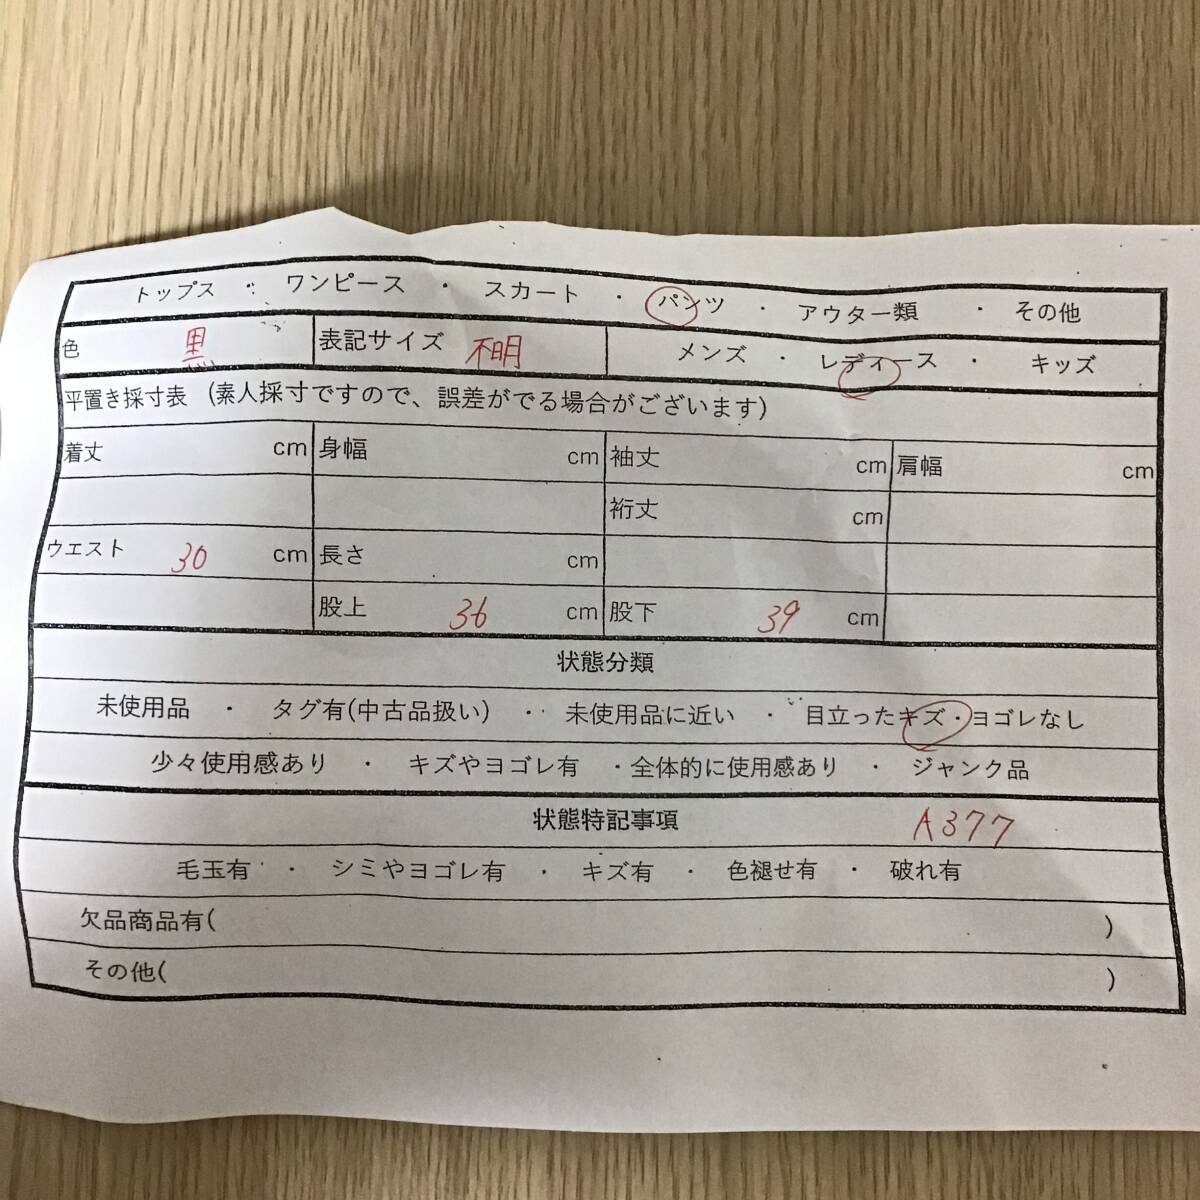 トップス ・ ワンピース ・ スカート ・ パンツ ・ アウター類 ・ その他
色 黒 表記サイズ 不明 メンズ ・ レディース ・ キッズ
平置き採寸表 (素人採寸ですので、誤差がでる場合がございます)
着丈 cm 身幅 cm 袖丈 cm 肩幅 cm
裄丈 cm
ウエスト 30 cm 長さ cm
股上 36 cm 股下 39 cm
状態分類
未使用品 ・ タグ有(中古品扱い) ・ 未使用品に近い ・ 目立ったキズ・ヨゴレなし
少々使用感あり ・ キズやヨゴレ有 ・全体的に使用感あり ・ ジャンク品
状態特記事項 A377
毛玉有 ・ シミやヨゴレ有 ・ キズ有 ・ 色褪せ有 ・ 破れ有
欠品商品有( )
その他( )